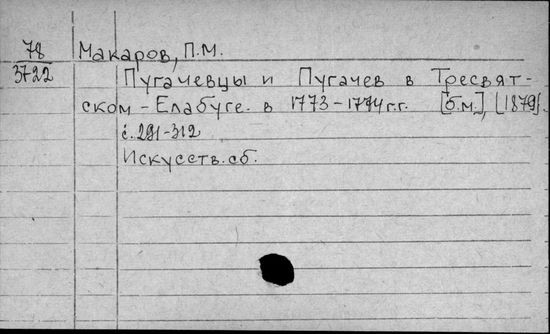 78 Макаров, П.М.
3722 Пугачевцы и Пугачев в Тресвят-
ском-Елабуге в 1773-1774 г.г. [б.м.], [1879].
с. 291-312
Искусств. сб.